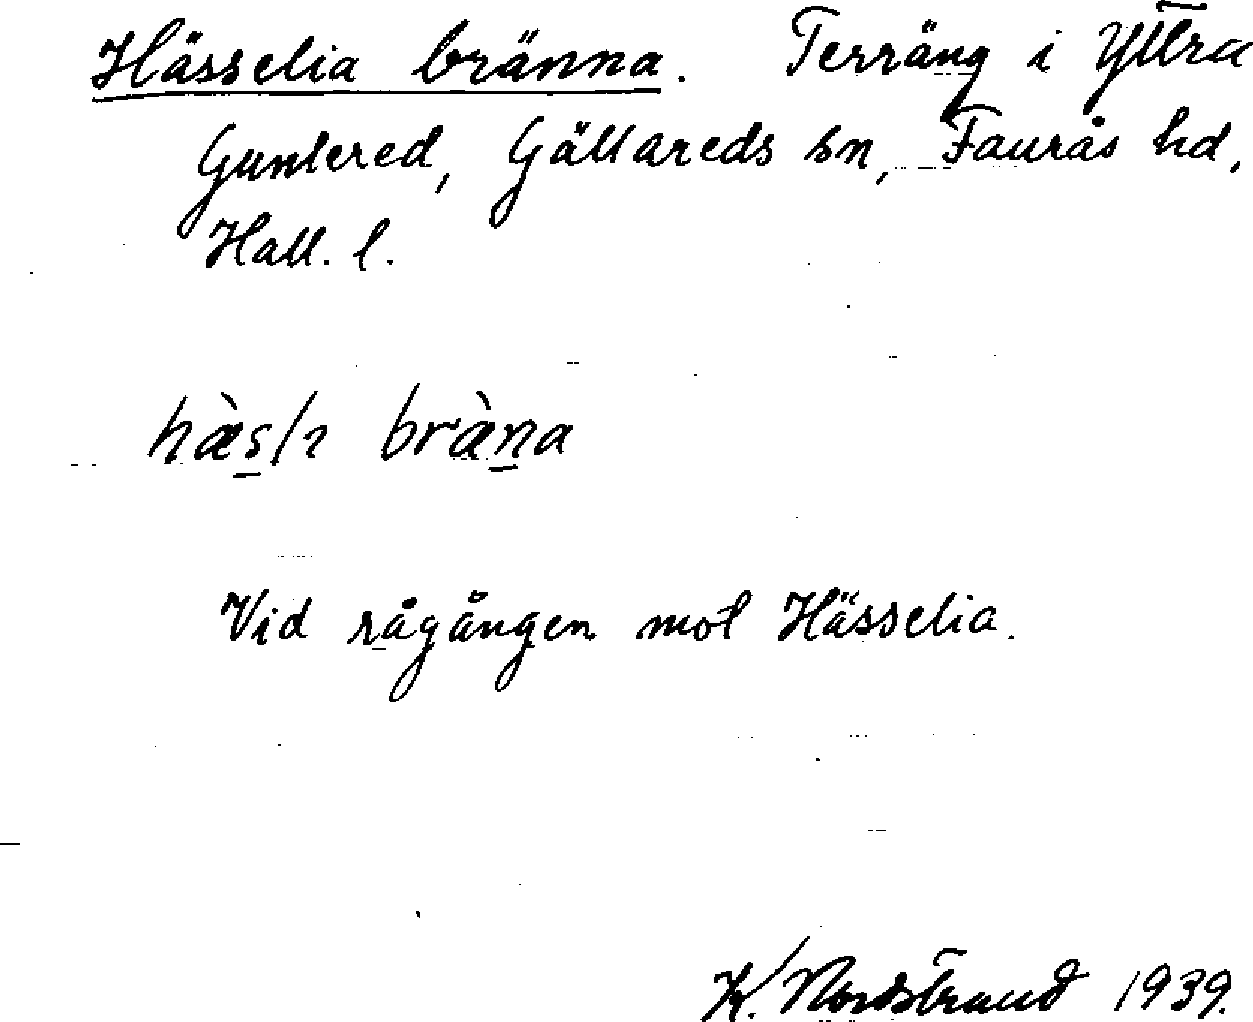 Hässelia bränna. Terräng i Yttra
Guntered, Gällareds sn, Faurås hd,
Hall. l.
bràna
Vid rågången mot Hässelia.
K. Nordstrand 1939.